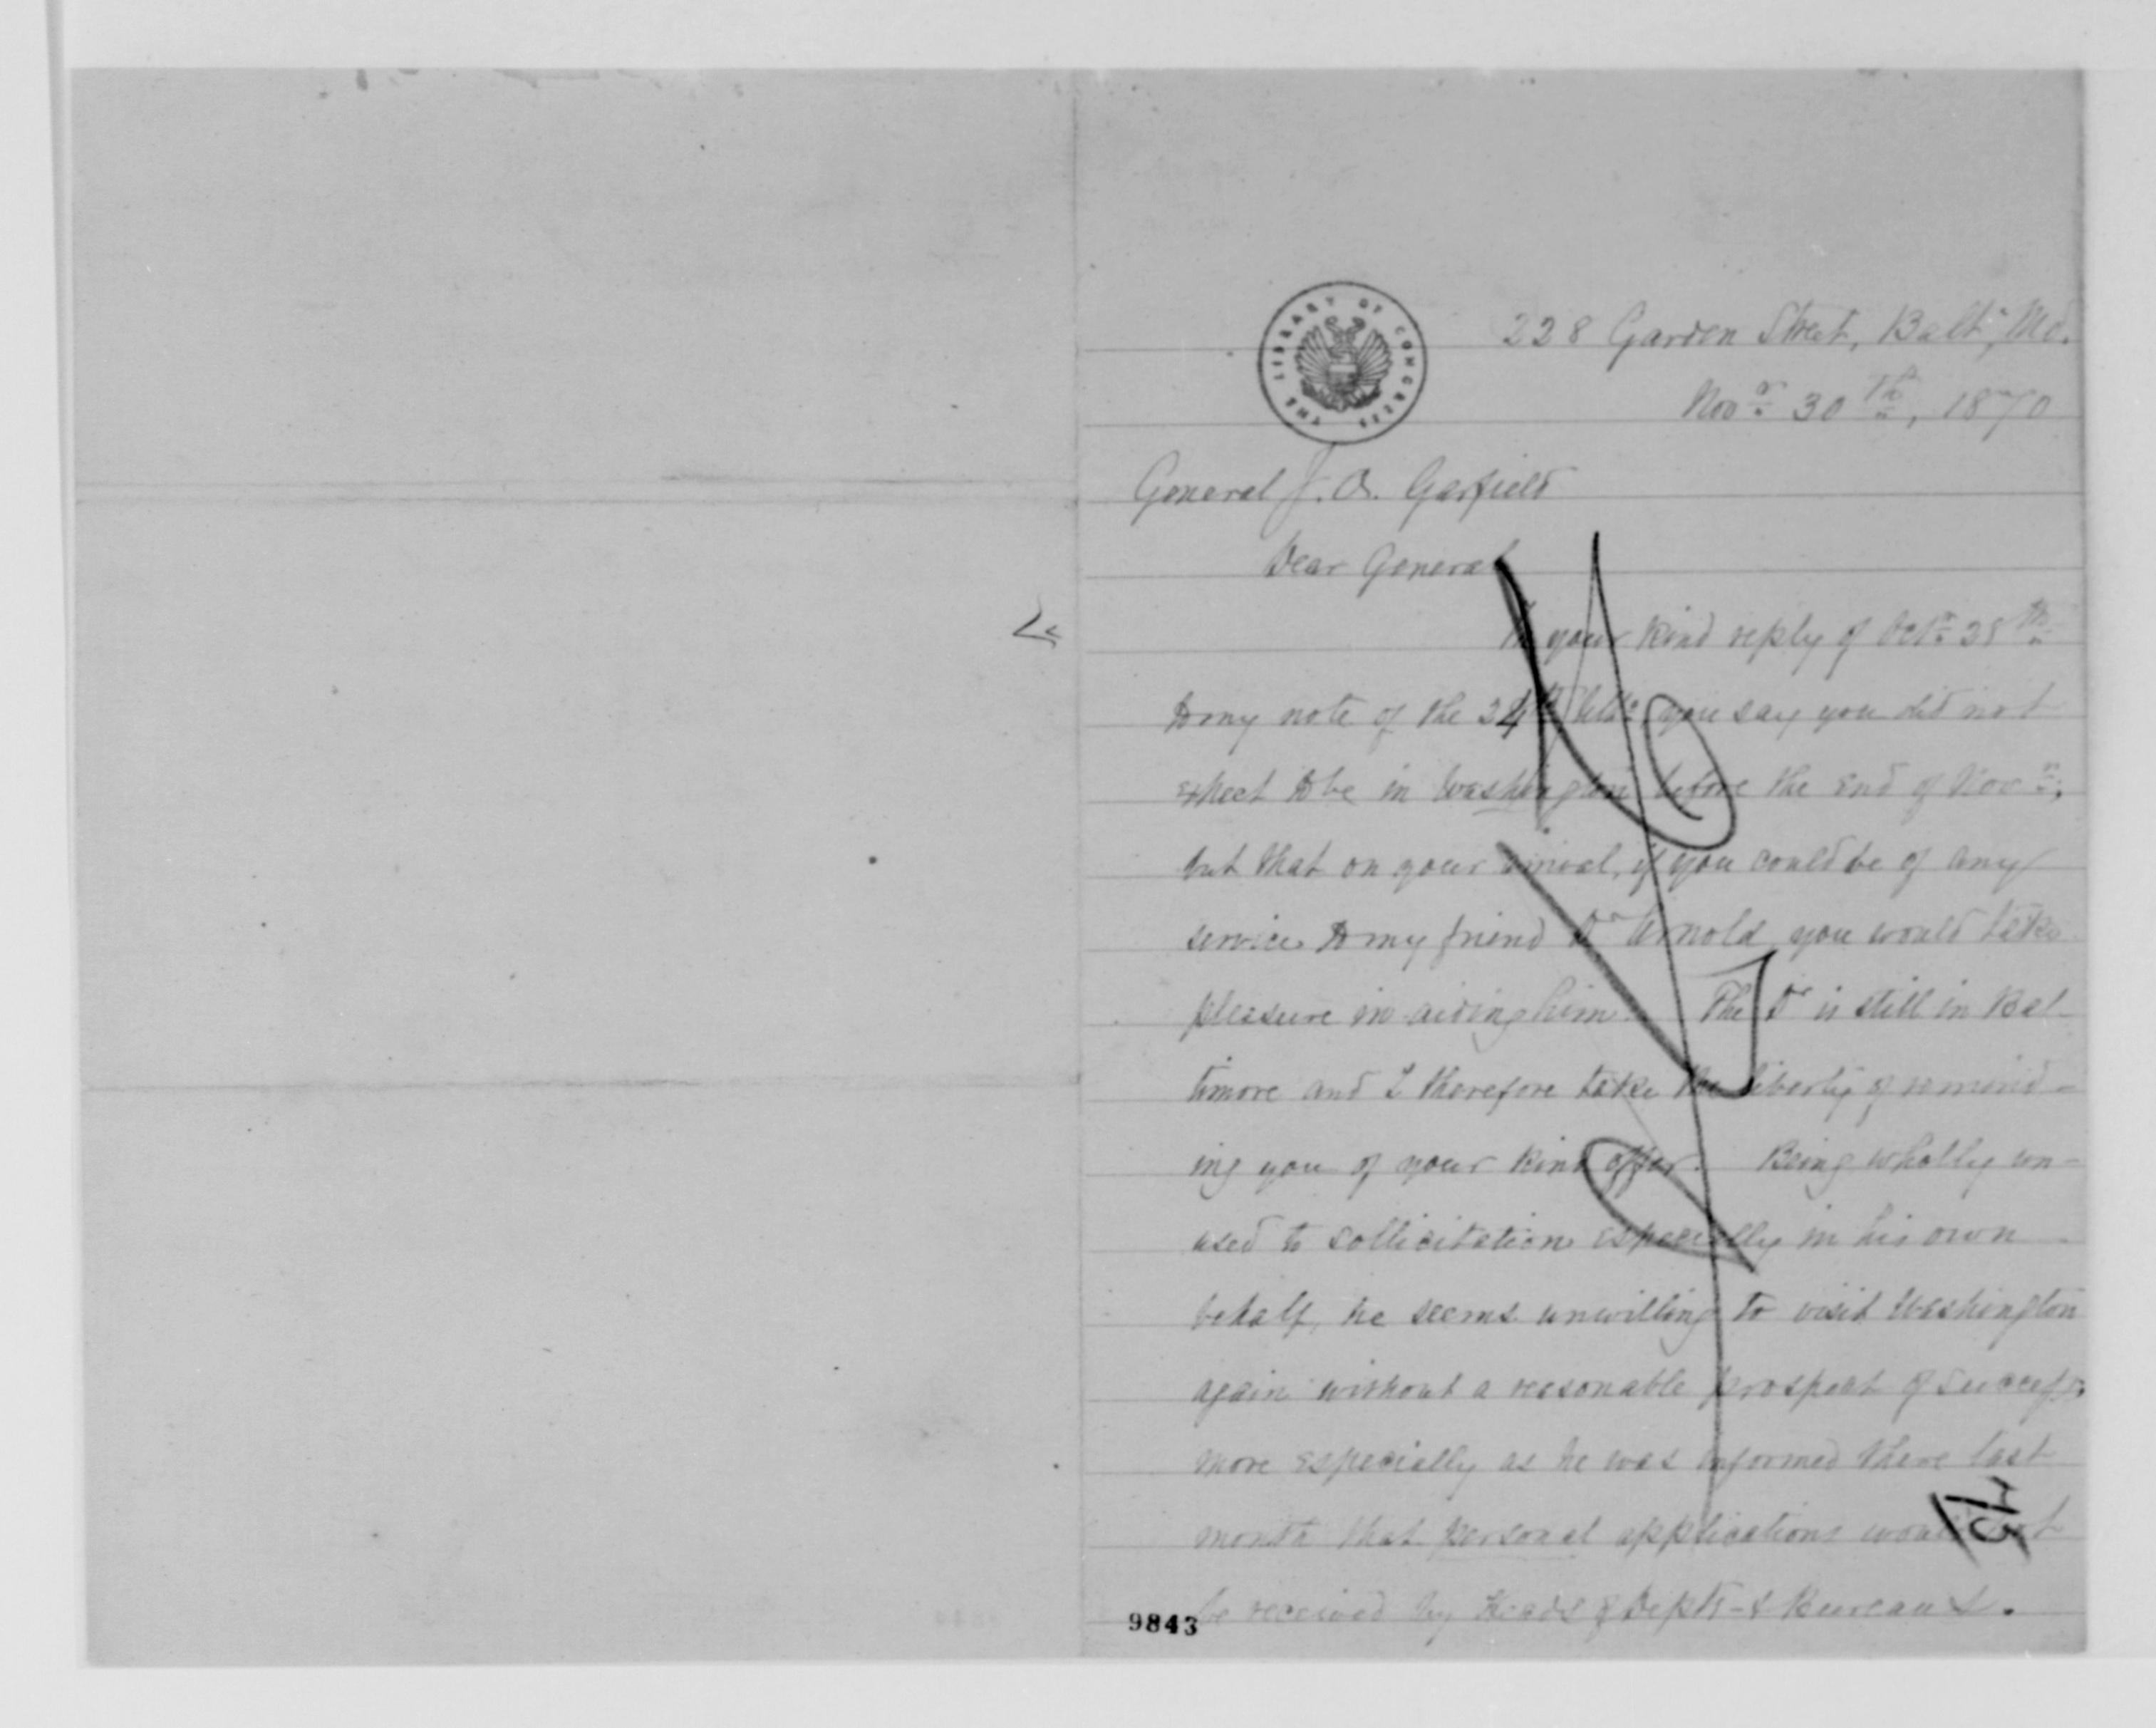 THE LIBRARY OF CONGRESS
228 Garden Street, Balt:, Md.
Nov.r 30th, 1870
General J. A. Garfield
Dear General
In your kind reply of Oct.r 28th
to my note of the 24th you say you did not
expect to be in Washington before the end of Nov.r;
but that on your arrival, if you could be of any
service to my friend Dr Arnold you would take
pleasure in aiding him. The Dr is still in Bal-
timore and I therefore take the liberty of remind-
ing you of your kind offer. Being wholly un-
used to sollicitation especially in his own
behalf, he seems unwilling to visit Washington
again without a reasonable prospect of success;
more especially as he was informed there last
month that personal applications would not
be received by Heads of Depts & Bureaus.
9843